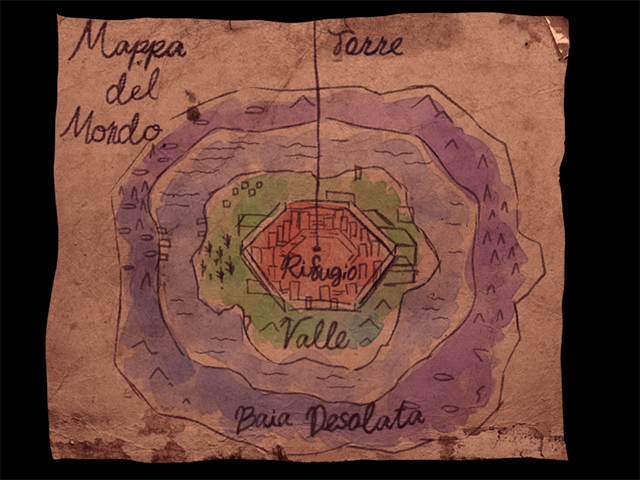 Mappa
del
Mondo
Torre
Rifugio
Valle
Baia Desolata